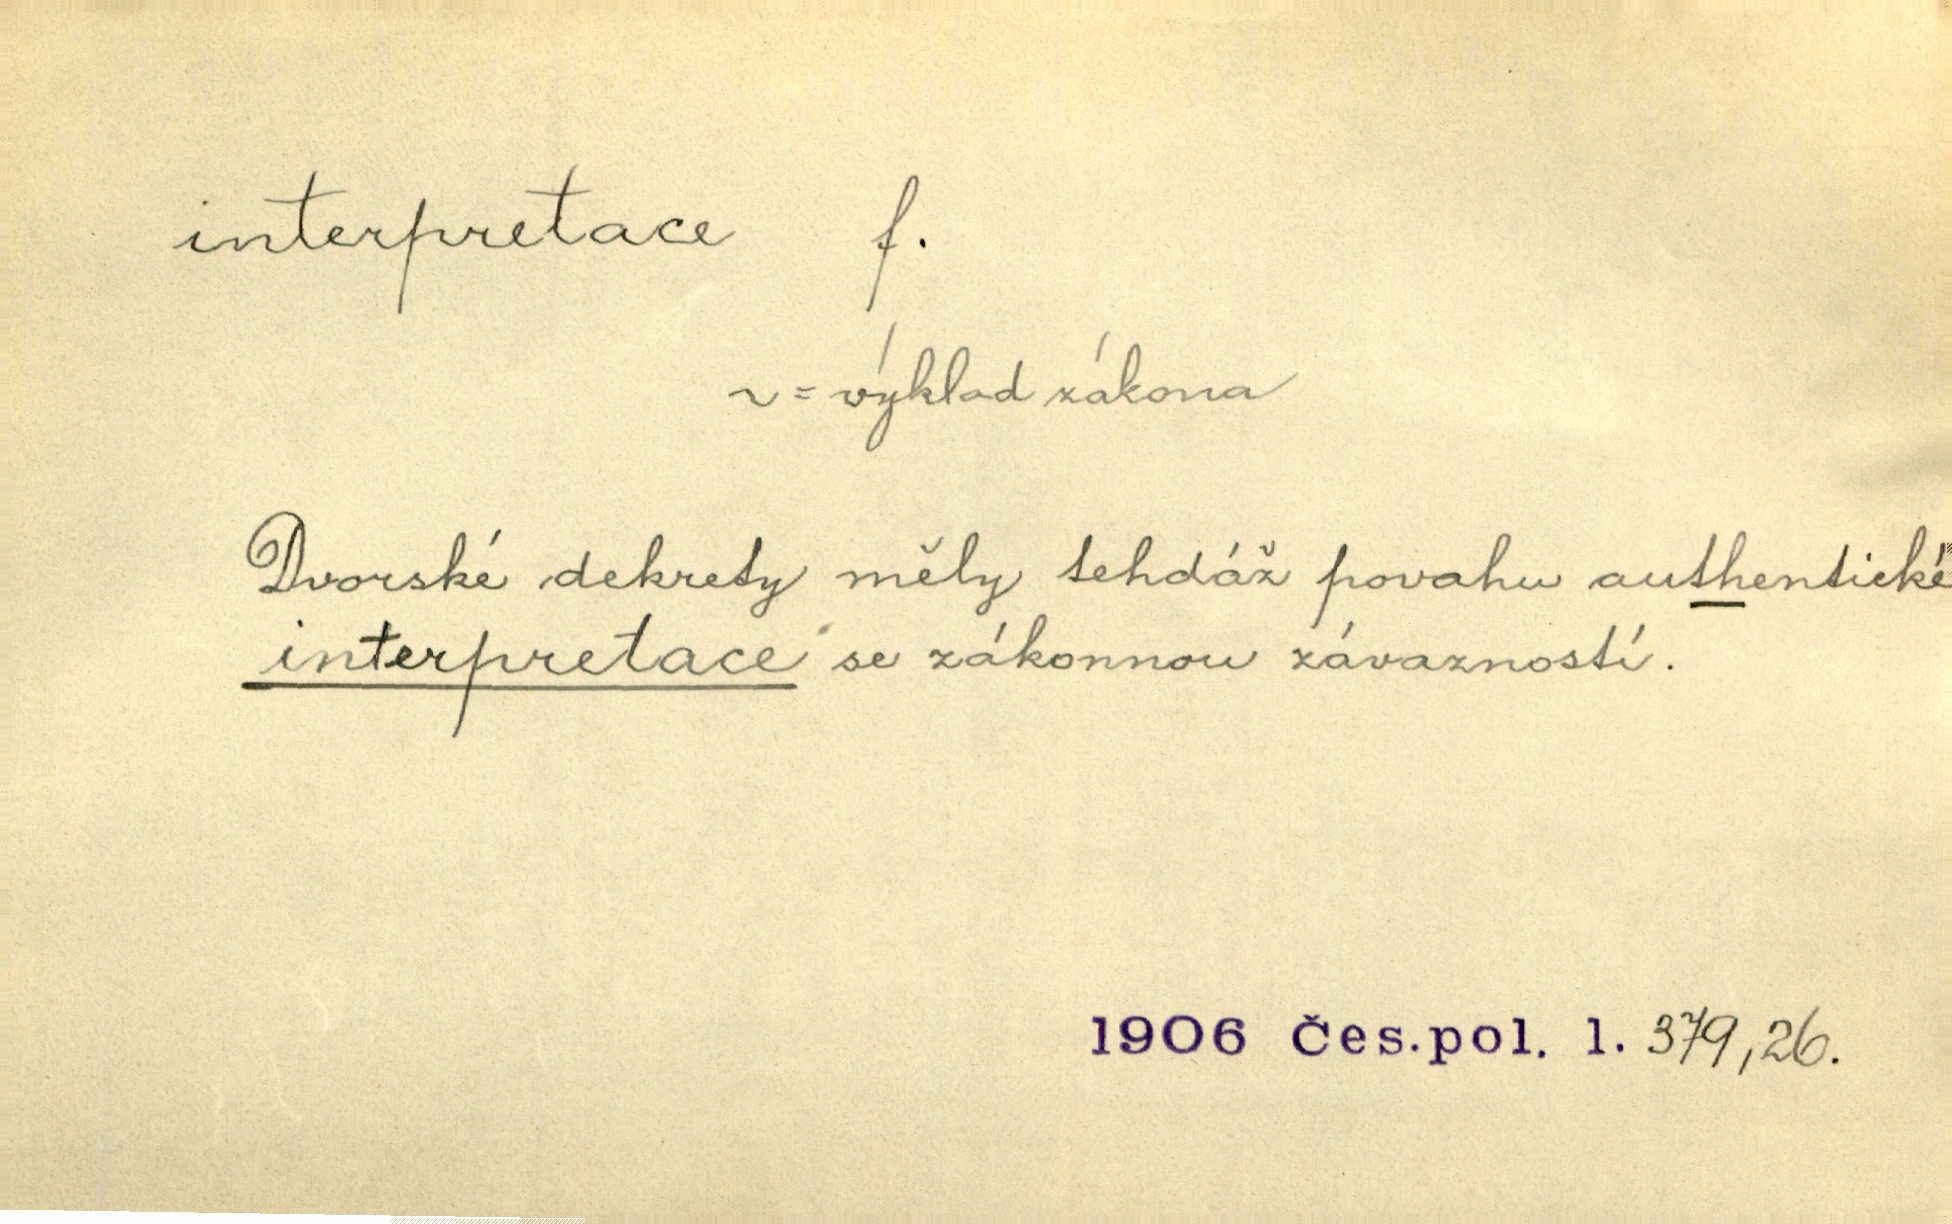 interpretace f.
~ = výklad zákona
Dvorské dekrety měly tehdáž povahu authentické
interpretace se zákonnou závazností.
1906 Čes.pol. l. 379,26.